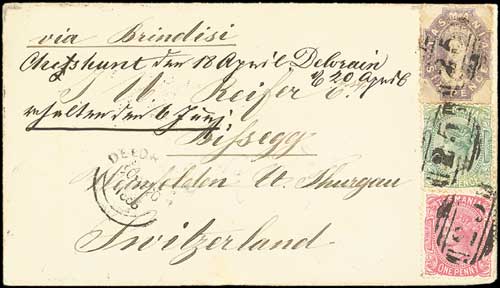 via Brindisi
Cheshunt den 18 April Delorain
20 April
J. U. Keifer
erhalten den 6 Juni
Bissegg
Weinfelden Ct. Thurgau
Switzerland
DELOR
ONE PENNY